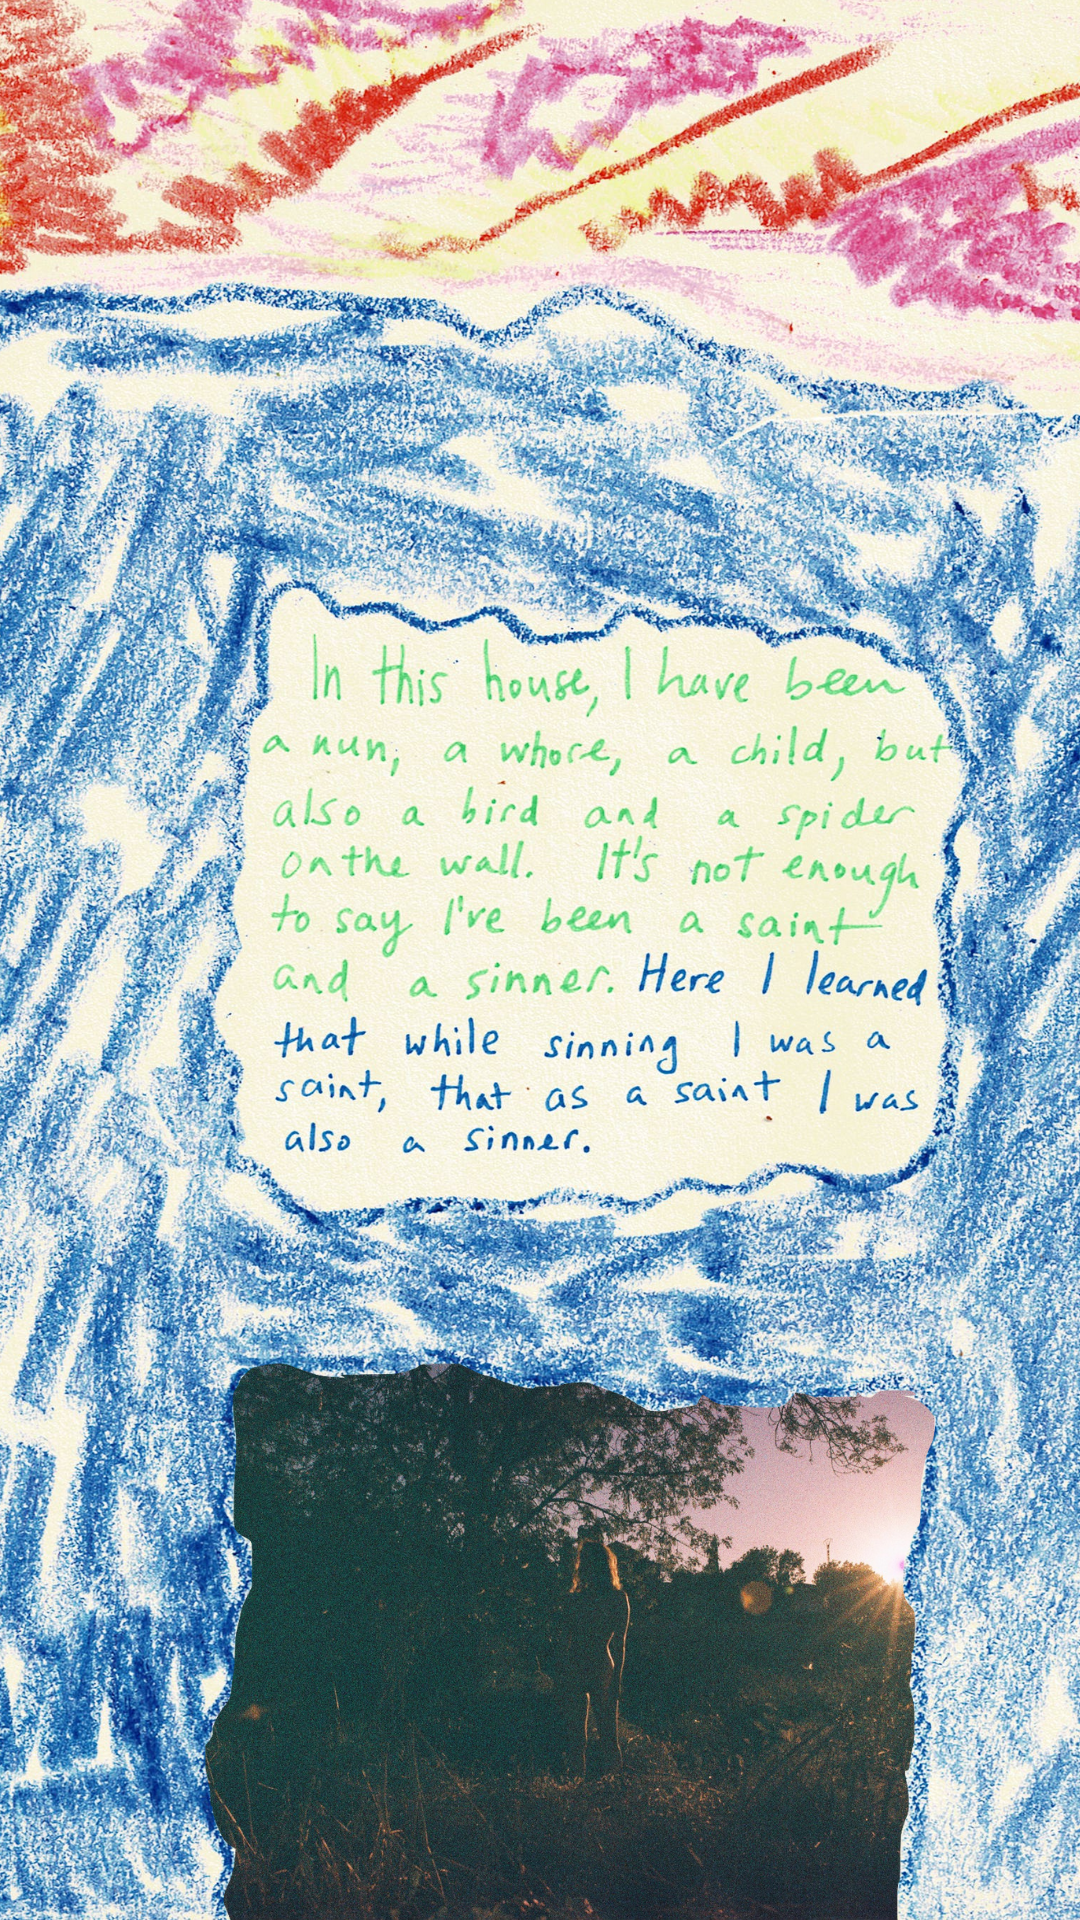 In this house, I have been
a nun, a whore, a child, but
also a bird and a spider
on the wall. It's not enough
to say I've been a saint
and a sinner. Here I learned
that while sinning I was a
saint, that as a saint I was
also a sinner.